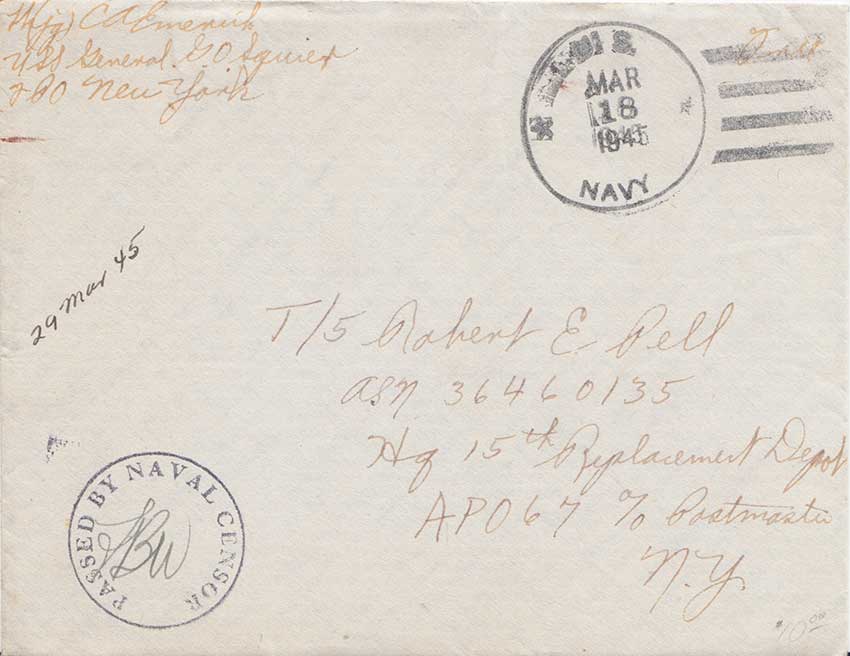 Lt(jg) C A Emerich
USS General G. O Squier
FPO New York
Free
U.S.
MAR
18
1945
NAVY
29 Mar 45
T/5 Robert E. Pell
ASN 36460135
Hq 15th Replacement Depot
APO 67 % Postmaster
N.Y.
PASSED BY NAVAL CENSOR
$10.00